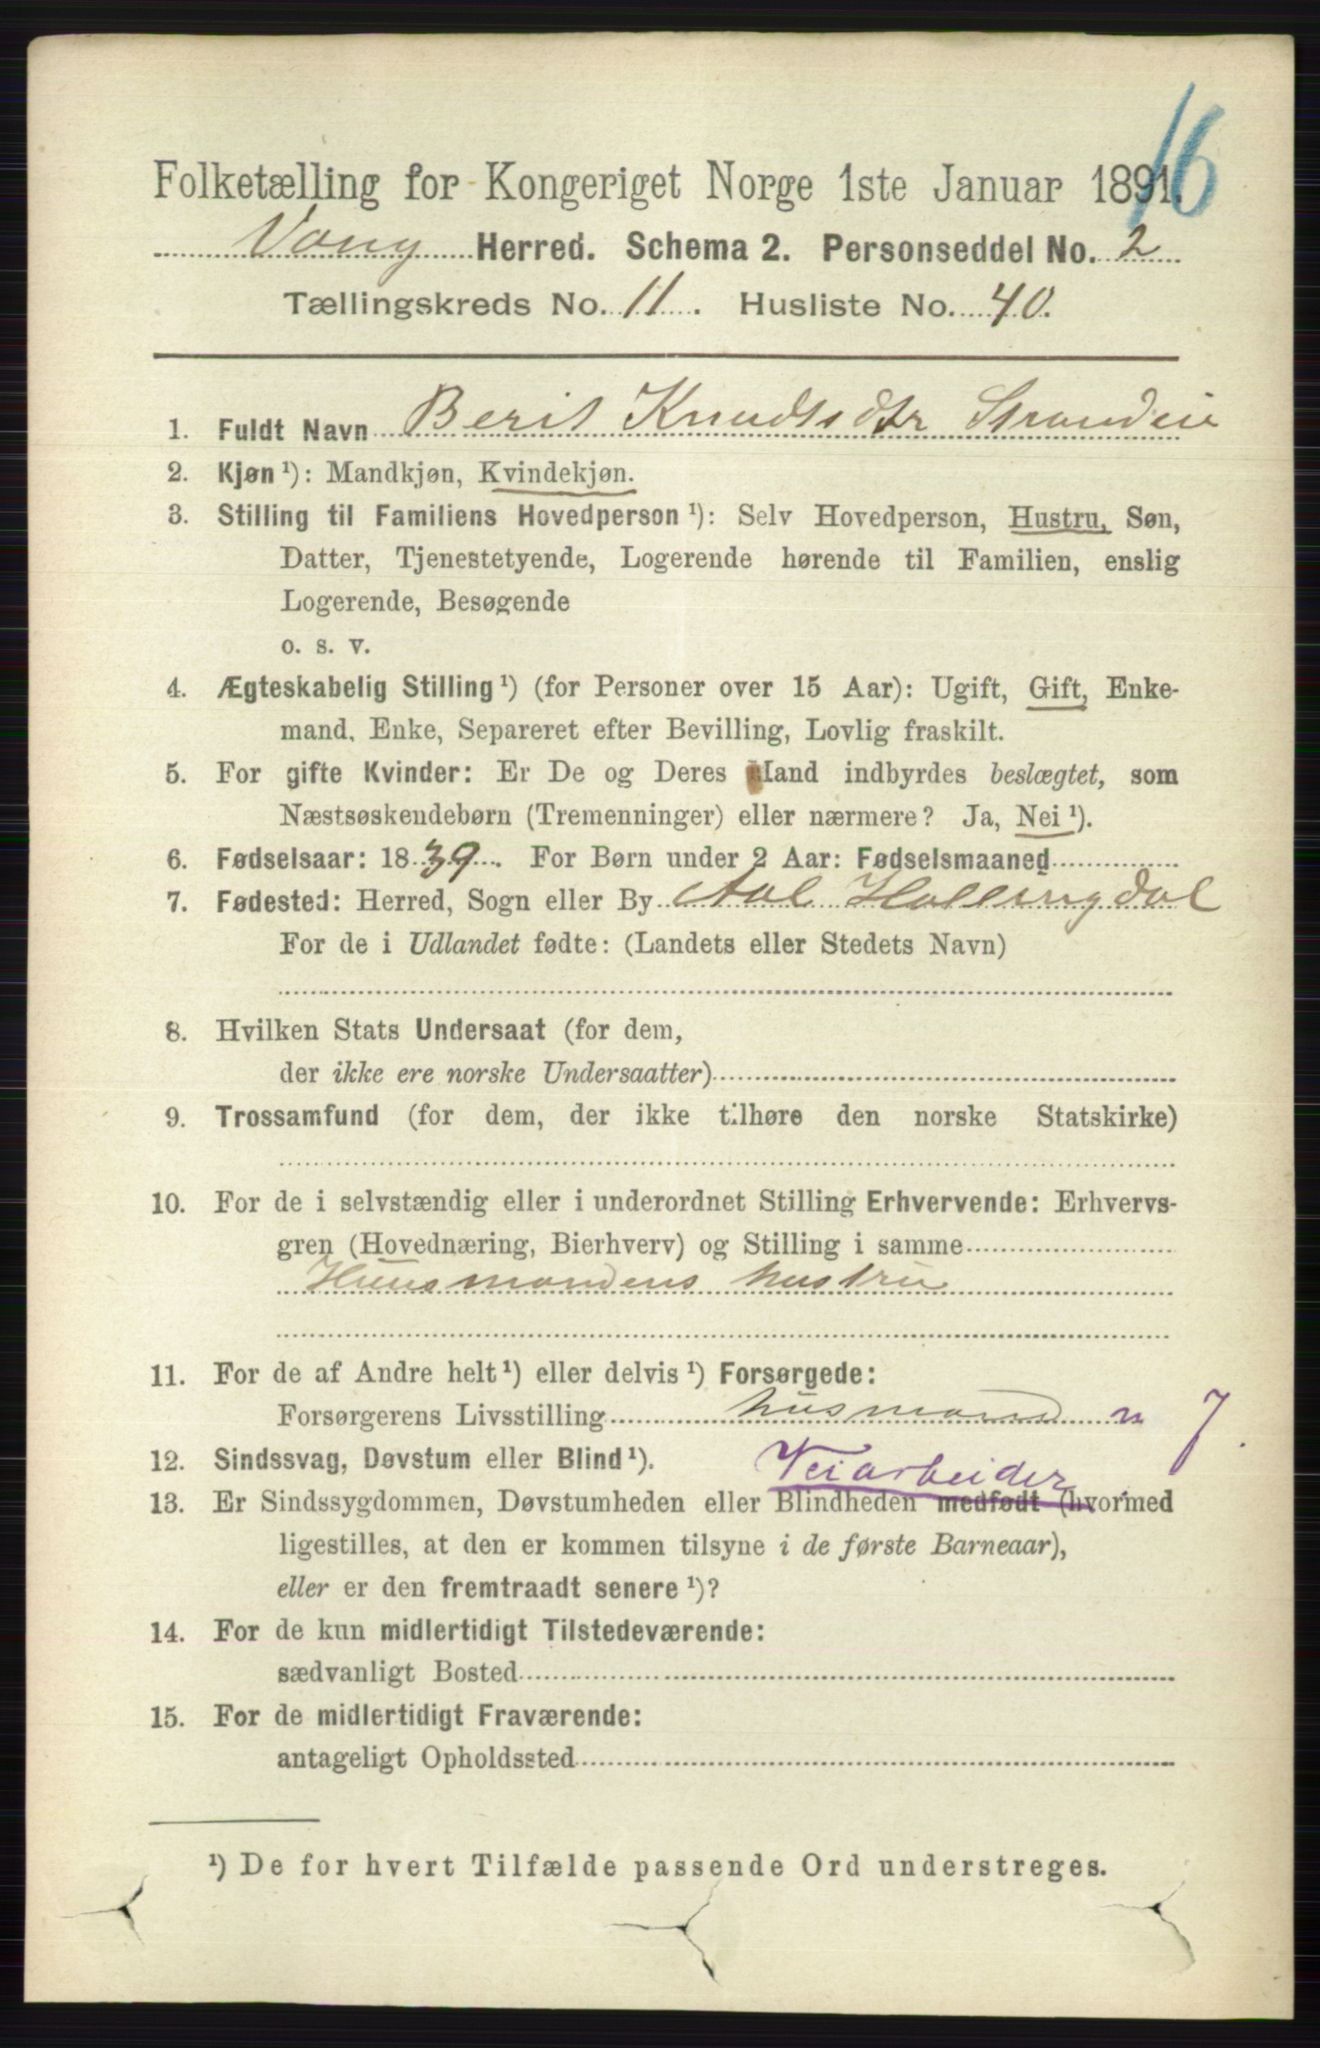 16
Folketælling for Kongeriget Norge 1ste Januar 1891.
Vang Herred. Schema 2. Personseddel No. 2
Tællingskreds No. 11. Husliste No. 40.
1. Fuldt Navn Berit Knudtsdtr Strandeie
2. Kjøn ¹): Mandkjøn, Kvindekjøn.
3. Stilling til Familiens Hovedperson ¹): Selv Hovedperson, Hustru, Søn,
Datter, Tjenestetyende, Logerende hørende til Familien, enslig
Logerende, Besøgende
o. s. v.
4. Ægteskabelig Stilling ¹) (for Personer over 15 Aar): Ugift, Gift, Enke-
mand, Enke, Separeret efter Bevilling, Lovlig fraskilt.
5. For gifte Kvinder: Er De og Deres Mand indbyrdes beslægtet, som
Næstsøskendebørn (Tremenninger) eller nærmere? Ja, Nei ¹).
6. Fødselsaar: 1839. For Børn under 2 Aar: Fødselsmaaned
7. Fødested: Herred, Sogn eller By Aal Hallingdal
For de i Udlandet fødte: (Landets eller Stedets Navn)
8. Hvilken Stats Undersaat (for dem,
der ikke ere norske Undersaatter)
9. Trossamfund (for dem, der ikke tilhøre den norske Statskirke)
10. For de i selvstændig eller i underordnet Stilling Erhvervende: Erhvervs-
gren (Hovednæring, Bierhverv) og Stilling i samme
Huusmandens hustru
11. For de af Andre helt ¹) eller delvis ¹) Forsørgede:
Forsørgerens Livsstilling husmand n 7.
12. Sindssvag, Døvstum eller Blind ¹). Veiarbeider
13. Er Sindssygdommen, Døvstumheden eller Blindheden medfødt (hvormed
ligestilles, at den er kommen tilsyne i de første Barneaar),
eller er den fremtraadt senere ¹)?
14. For de kun midlertidigt Tilstedeværende:
sædvanligt Bosted
15. For de midlertidigt Fraværende:
antageligt Opholdssted
¹) De for hvert Tilfælde passende Ord understreges.